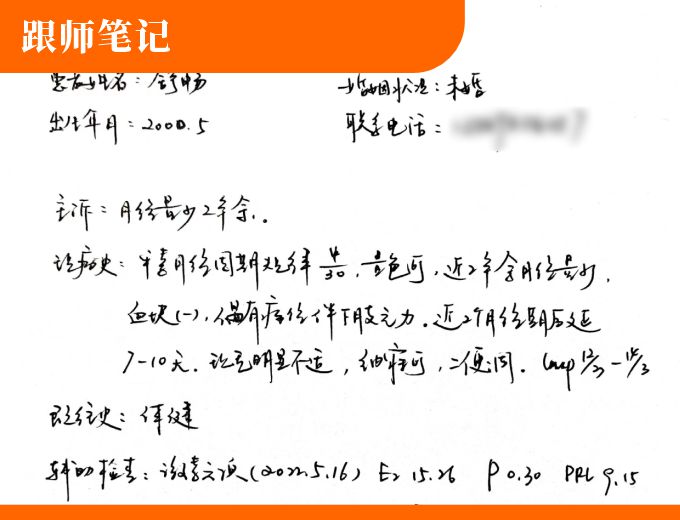 跟师笔记
患者姓名：舒畅 婚姻状况：未婚
出生年月：2000.5 联系电话：
主诉：月经量少2年余。
现病史：平素月经周期规律 4/30，量色可，近2年余月经量少，
血块(-)，偶有痛经伴下肢乏力。近2个月经期后延
7-10天。现无明显不适，纳寐可，二便调。Lmp 12/3-15/3
既往史：体健
辅助检查：激素六项(2022.5.16) E2 15.26 P 0.30 PRL 9.15